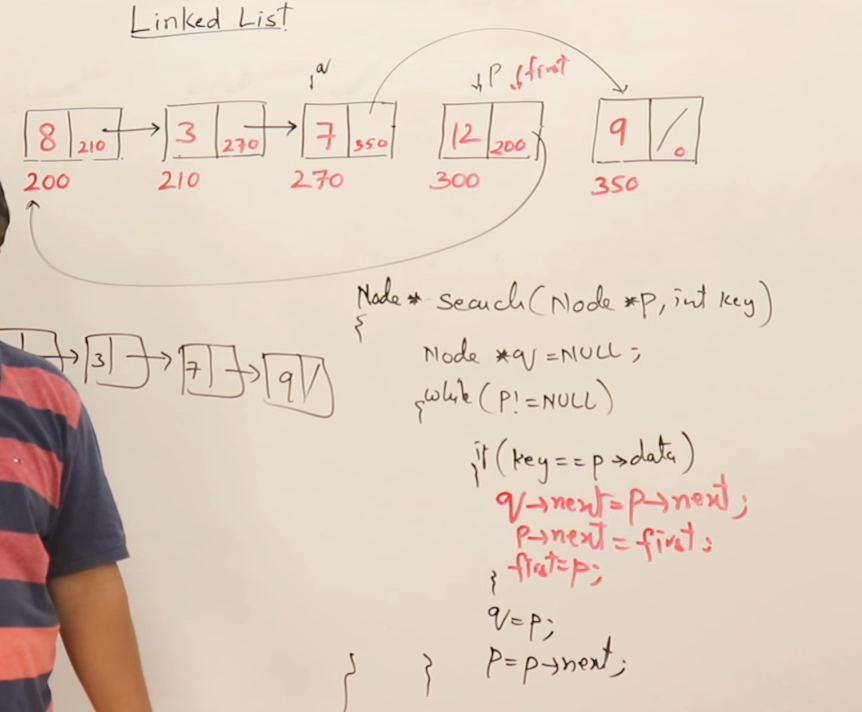 Linked List
q
P first
8 210
3 270
7 350
12 200
9 0
200
210
270
300
350
3
7
9
Node* search(Node *p, int key)
{
Node *q = NULL;
{ while (P! = NULL)
if (key == p→data)
{
q→next = p→next;
p→next = first;
first = p;
}
q = p;
p = p→next;
} }